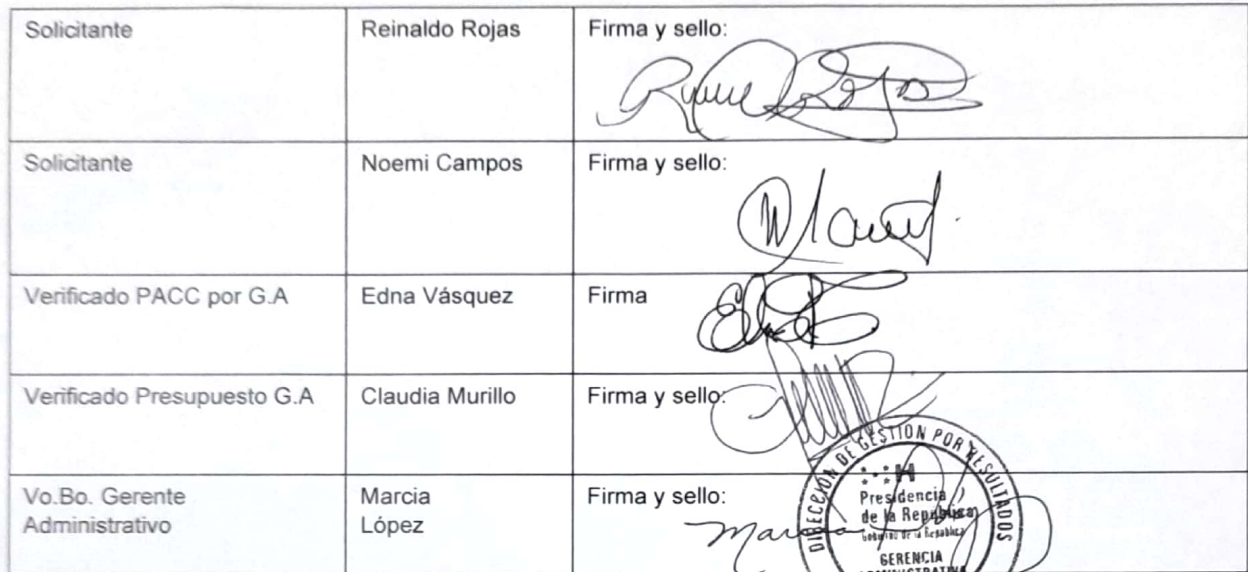 Solicitante
Reinaldo Rojas
Firma y sello:
Solicitante
Noemi Campos
Firma y sello:
Verificado PACC por G.A
Edna Vásquez
Firma
Verificado Presupuesto G.A
Claudia Murillo
Firma y sello:
Vo.Bo. Gerente
Administrativo
Marcia
López
Firma y sello:
DIRECCIÓN DE GESTION POR RESULTADOS
Presidencia
de la República
Gobierno de la República
GERENCIA
ADMINISTRATIVA